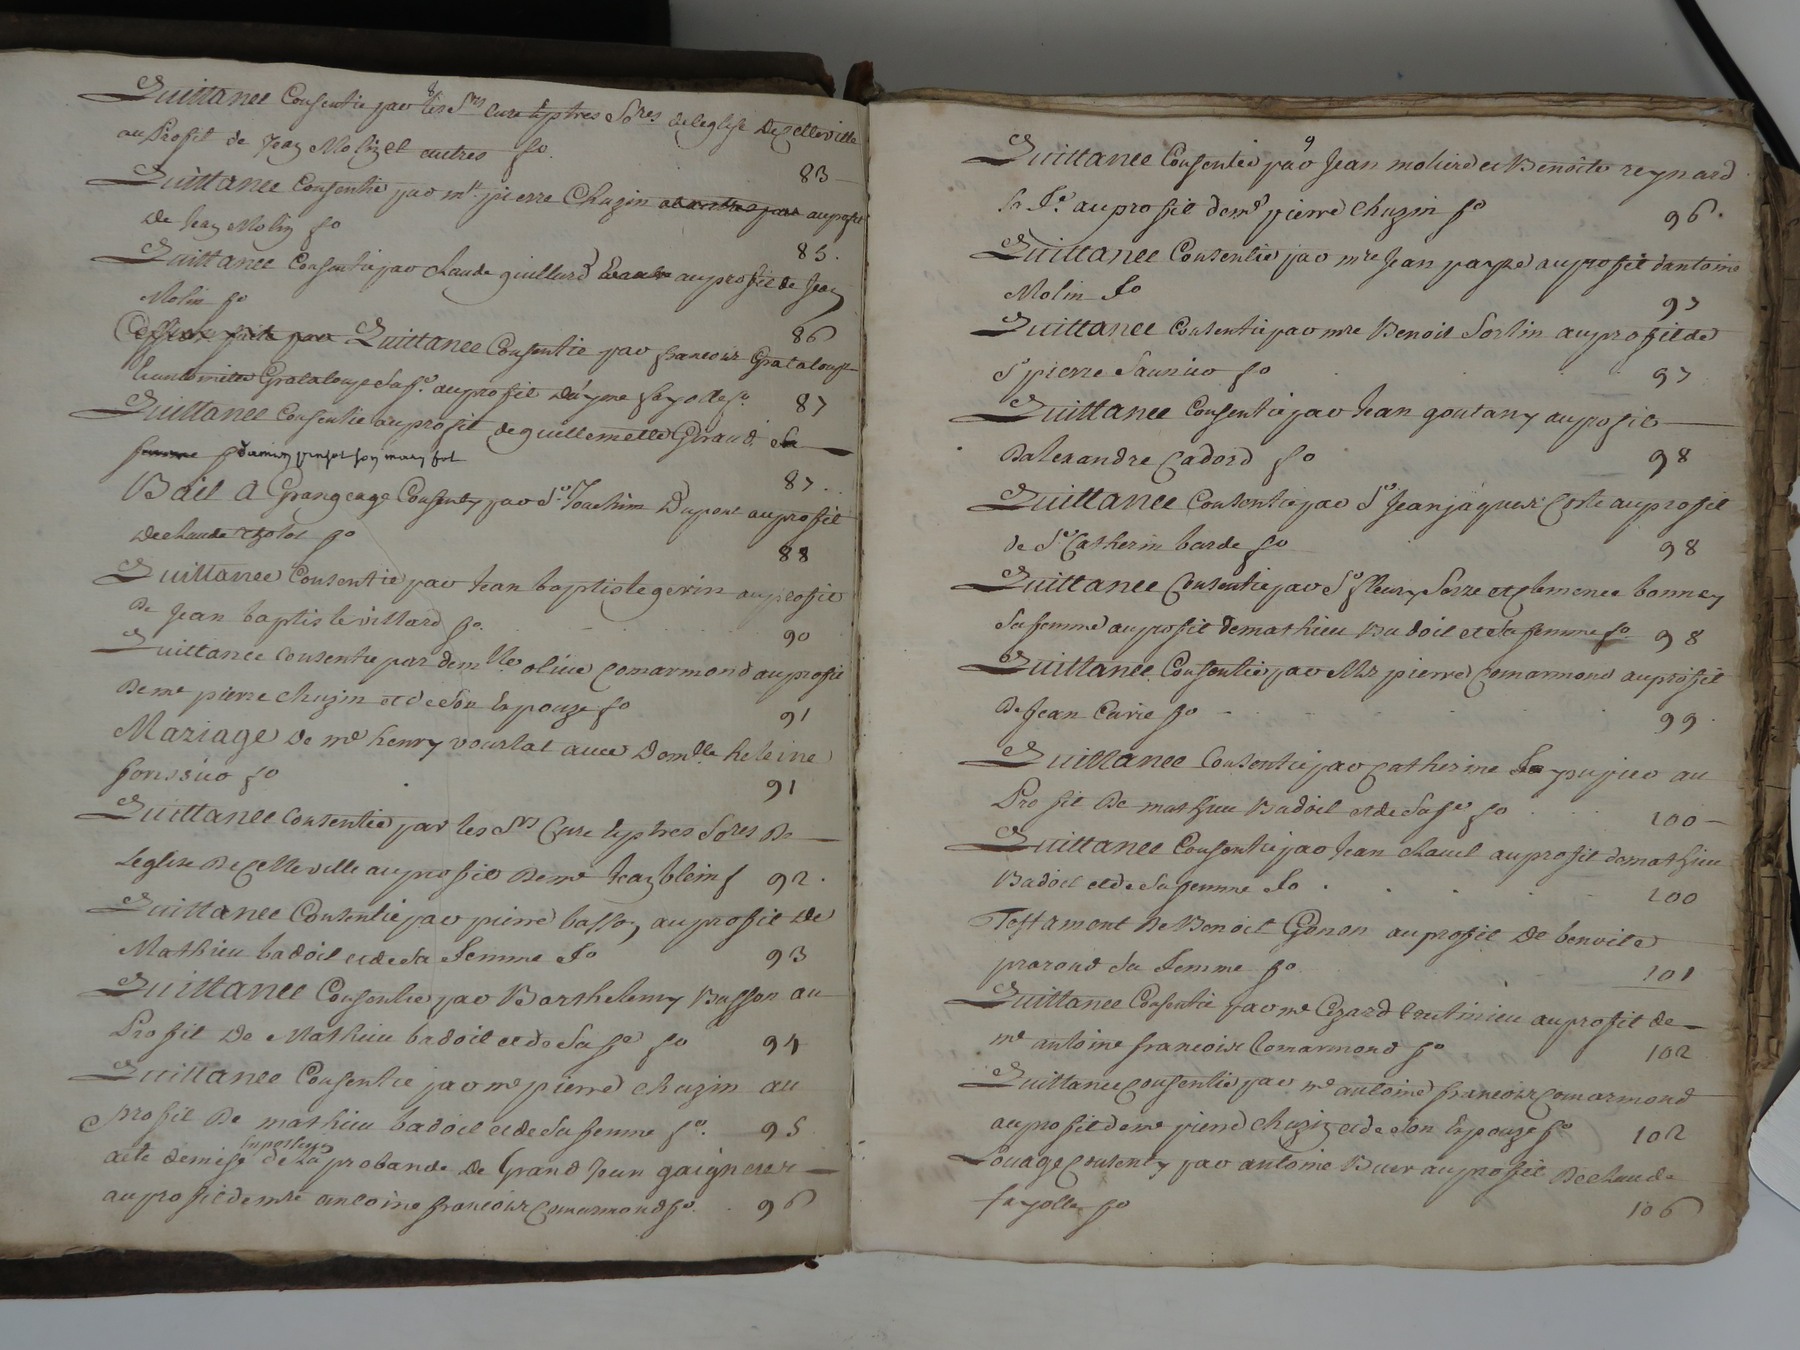 8
Quittance Consentie par les Srs Cure & ptres Sores de leglise De Celleville
au Profit de Jean Molin et autres fo
83
Quittance Consentie par mre pierre Chuzin au profit
de Jean Molin fo
85.
Quittance Consentie par claude guillard au profit de Jean
Molin fo
86
Quittance Consentie par francois Grataloup
Grataloup Sa fe au profit Dayme fayolle fo 87
Quittance Consentie au profit de guillemette Giraud
son mary fol
87.
Bail a Grangeage Consenty par Sr Joachim Dupont au profit
De claude fo
88
Quittance Consentie par Jean baptiste gerin au profit
De Jean baptiste villard fo.
90
Quittance Consentie par demlle olive Comarmond au profit
De mr pierre chuzin et de Son Epouze fo
91
Mariage De me henry vourlat avec Domlle heleine
forissier fo
91
Quittance Consentie par les Srs Cure & ptres Sores De
Leglise De Celleville au profit De mr Jean bleinf 92.
Quittance Consentie par pierre basson au profit De
Mathieu badoil et de Sa Femme Fo
93
Quittance Consentie par Barthelemy Basson au
Profit De Mathieu badoil et de Sa fe fo 94
Quittance Consentie par me pierre chuzin au
profit De mathieu badoil et de Sa femme fo. 95
acte de mise de La probande De Grand Jean gaigneur
au profit de mre antoine francois Comarmond fo. 96
9
Quittance Consentie par Jean moliere et Benoite reynard
Sa Fe au profit de me pierre chuzin fo 96.
Quittance Consentie par mre Jean au profit dantoine
Molin Fo
97
Quittance Consentie par mre Benoit Sorlin au profit de
Sr pierre Saunier fo 97
Quittance Consentie par Jean goutany au profit
Dalexandre Cadord fo 98
Quittance Consentie par Sr Jean jaques Coste au profit
de Sr Catherin barde fo 98
Quittance Consentie par Sr fleury et Clemence bonney
Sa femme au profit de mathieu Badoil et de Sa femme fo 98
Quittance Consentie par Mre pierre Comarmond au profit
De Jean Curie fo 99.
Quittance Consentie par Catherine au
Profit De mathieu Badoil et de Sa fe fo 100
Quittance Consentie par Jean chavel au profit de mathieu
Badoil et de Sa femme Fo 100
Testament De Benoit Gonon au profit De benoite
prarond Sa Femme fo 101
Quittance Consentie par me Cezard au profit de
me antoine francois Comarmond fo 102
Quittance Consentie par me antoine francois Comarmond
au profit de me pierre chuzin et de Son Epouze fo 102
Louage Consenty par antoine Buer au profit De claude
fayolle fo 106